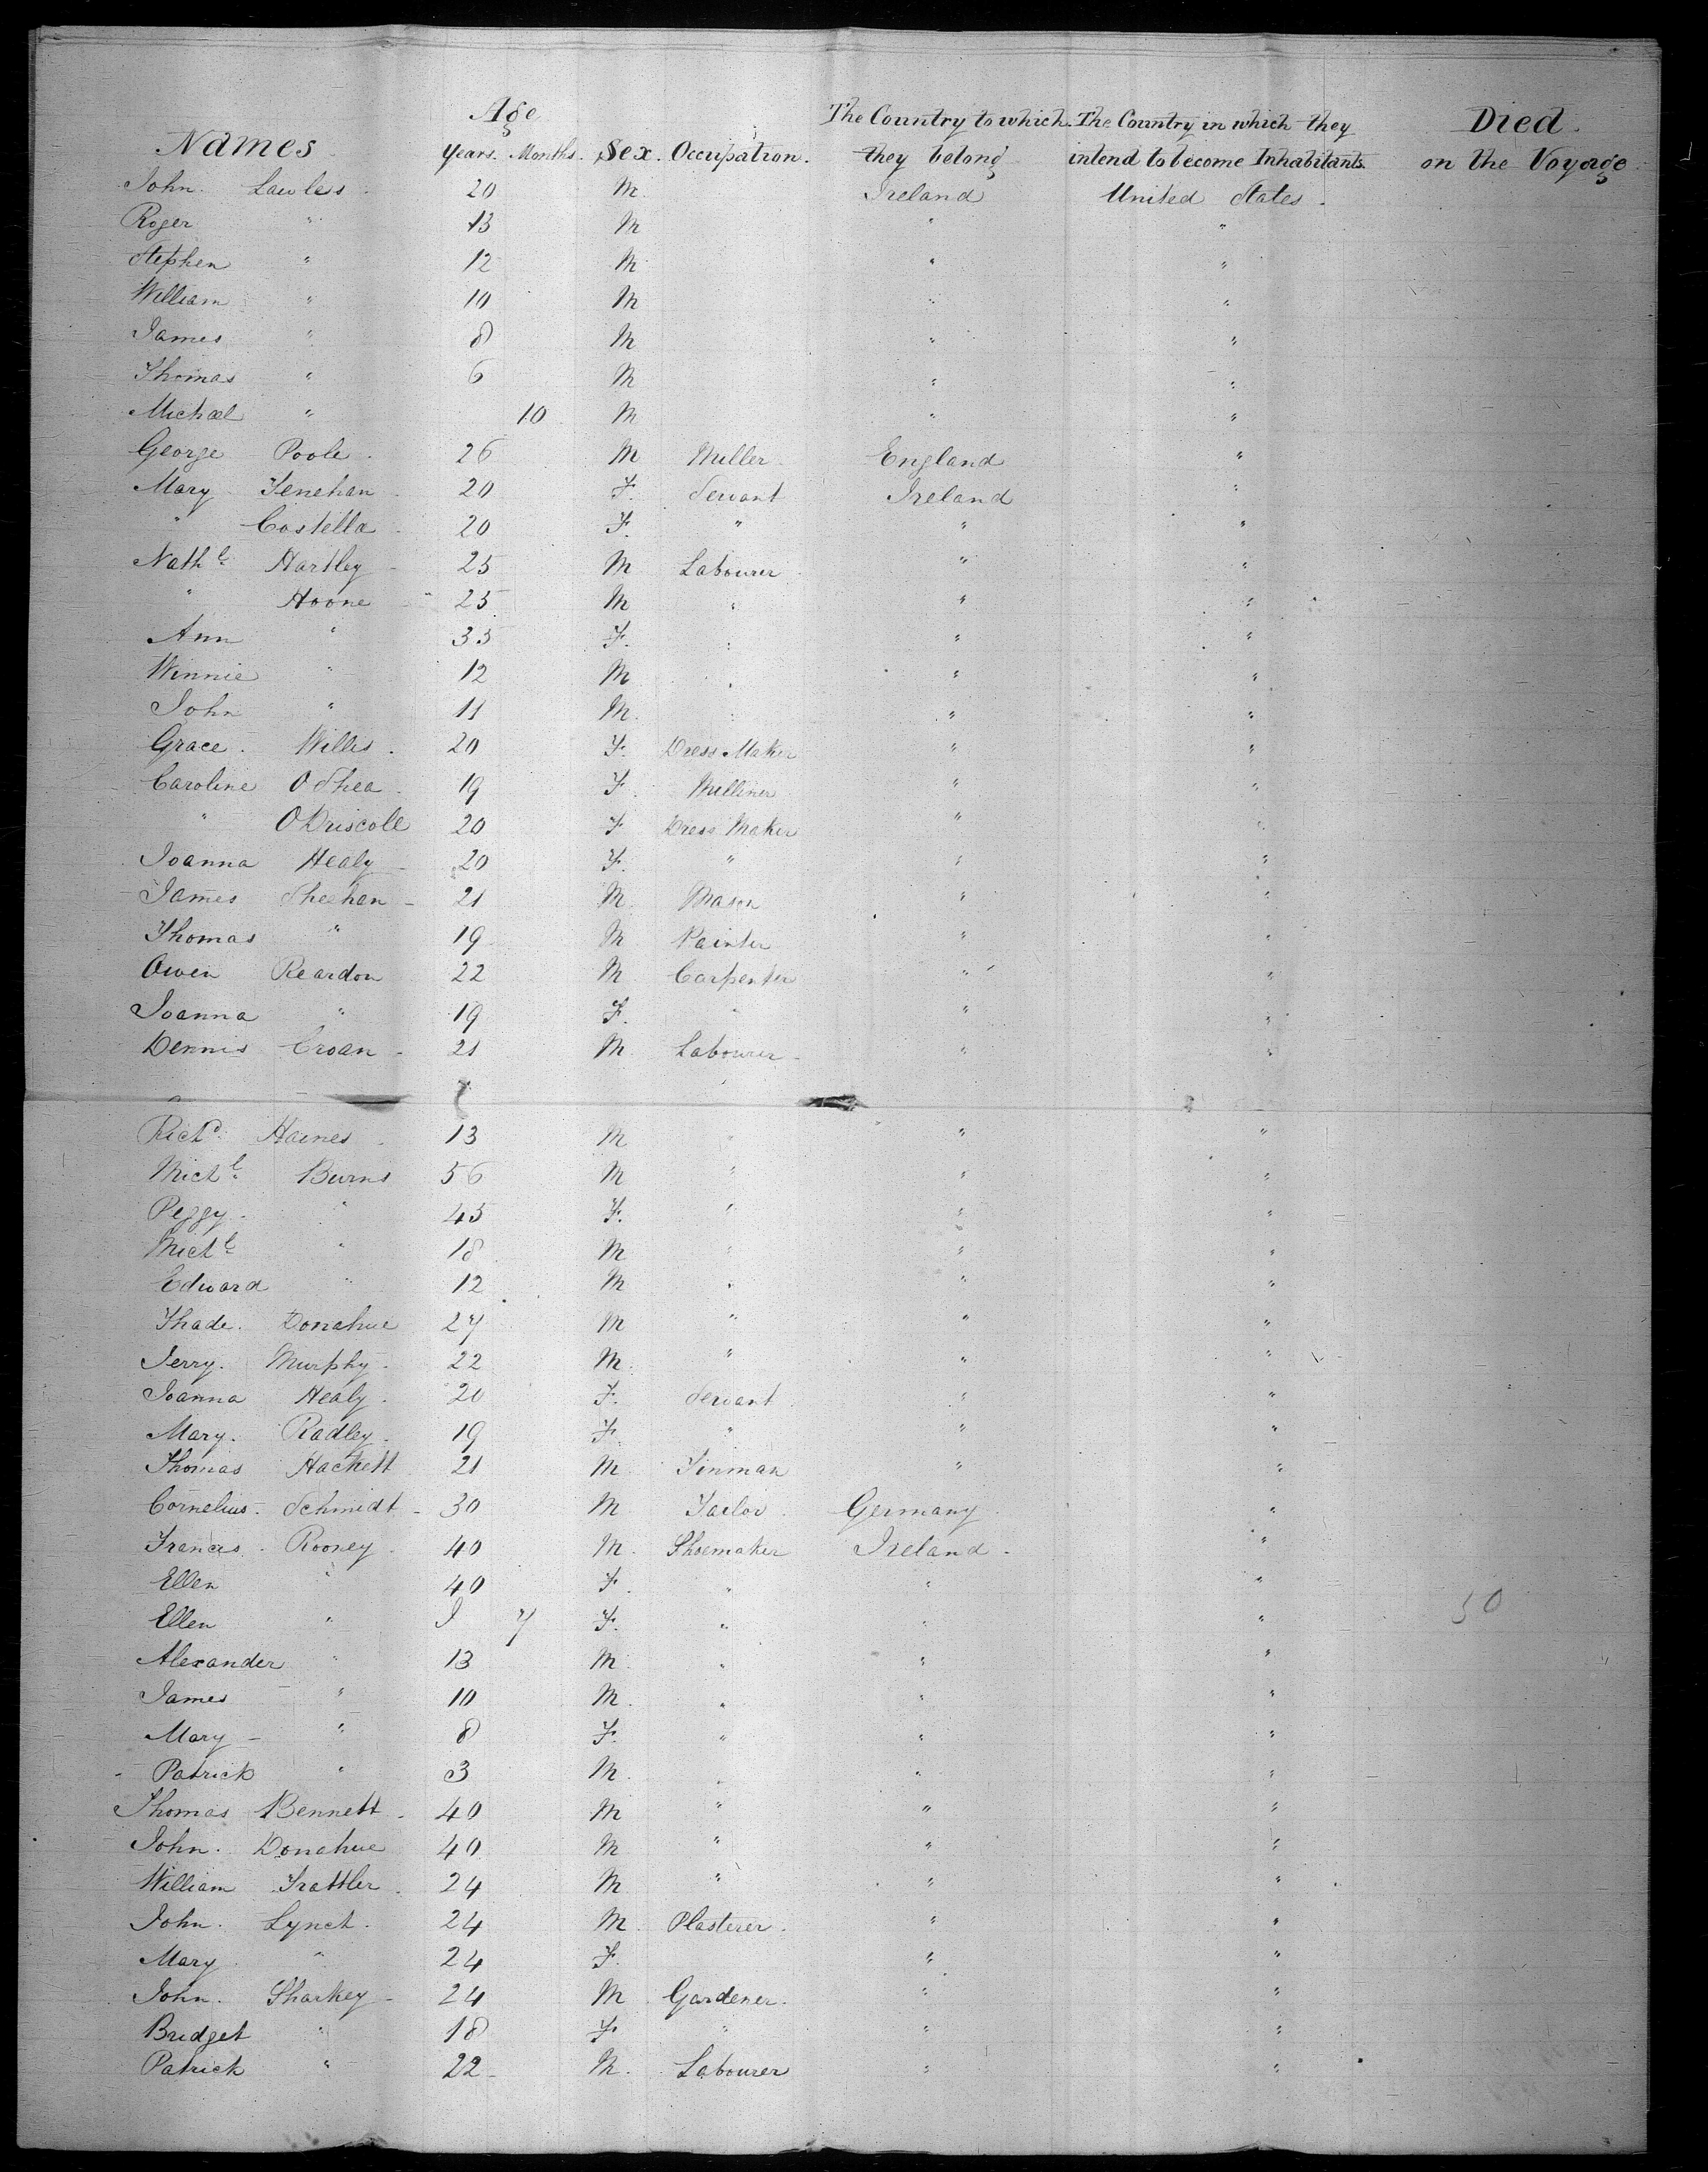 Names Age The Country to which The Country in which they Died
Years. Months. Sex. Occupation. they belong intend to become Inhabitants. on the Voyage
John. Lawless. 20 M. Ireland United States.
Roger " 13 M " "
Stephen " 12 M " "
William " 10 M " "
James " 8 M " "
Thomas " 6 M " "
Michael " 10 M " "
George Poole. 26 M Miller England "
Mary Fenehan 20 F. Servant Ireland "
" Costella 20 F. " " "
Nathl. Hartley 25 M Labourer " "
" Hoone 25 M " " "
Ann " 35 F. " " "
Winnie " 12 M " " "
John " 11 M. " " "
Grace. Willis. 20 F. Dress Maker " "
Caroline O Shea. 19 F. Milliner " "
" O Driscoll 20 F Dress Maker " "
Joanna Healy 20 F. " " "
James Sheehan 21 M. Mason " "
Thomas " 19 M Painter " "
Owen Reardon 22 M Carpenter " "
Joanna " 19 F. " " "
Dennis Croan 21 M. Labourer " "
Richd. Haines. 13 M " " "
Michl. Burns 56 M " " "
Peggy " 45 F. " " "
Michl. " 18 M " " "
Edward " 12 M " " "
Thade. Donahue 27 M " " "
Jerry. Murphy. 22 M. " " "
Joanna Healy. 20 F. Servant " "
Mary. Radley. 19 F. " " "
Thomas Hackett 21 M Tinman " "
Cornelius. Schmidt 30 M Tailor Germany "
Francis. Rooney. 40 M. Shoemaker Ireland. "
Ellen " 40 F. " " "
Ellen " 7 F. " " " 50
Alexander " 13 M. " " "
James " 10 M. " " "
Mary " 8 F. " " "
Patrick " 3 M. " " "
Thomas Bennett 40 M " " "
John. Donahue 40 M " " "
William Trattler. 24 M " " "
John. Lynch. 24 M. Plasterer. " "
Mary " 24 F. " "
John. Sharkey 24 M Gardener. " "
Bridget " 18 F " " "
Patrick " 22 M. Labourer " "